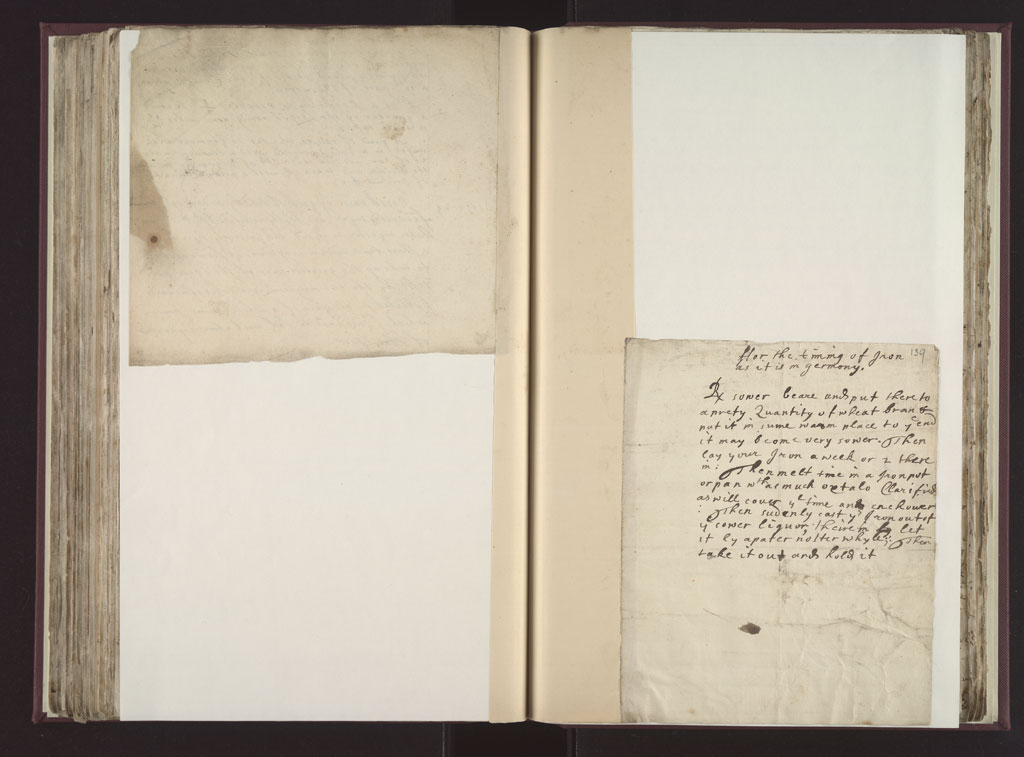 ffor the tining of Jron 139
as it is in germony.
℞ sower beare and put there to
a prety Quantity of wheat bran &
put it in sume warm place to yͤ end
it may become very sower. Then
lay your Jron a week or 2 there
in: Then melt tine in a Jron pot
or pan wᵗʰ as much oxtalo Clarified
as will couer yᵉ tine an enchouer
: Then sudenly cast yʳ Jron out of
yͤ sower liquor therein & let
it ly a pater noster whyle; Then
take it out and hold it